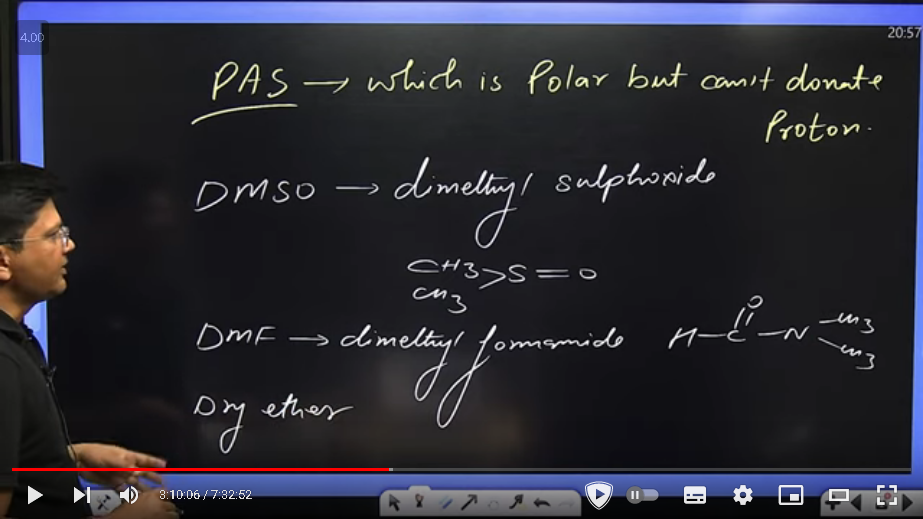 4.00
20:57
PAS → which is Polar but can't donate
Proton.
DMSO → dimethyl sulphoxide
CH3
CH3 >S=O
DMF → dimethyl formamide H-C-N -CH3
O
CH3
Dry ether
3:10:06 / 7:32:52